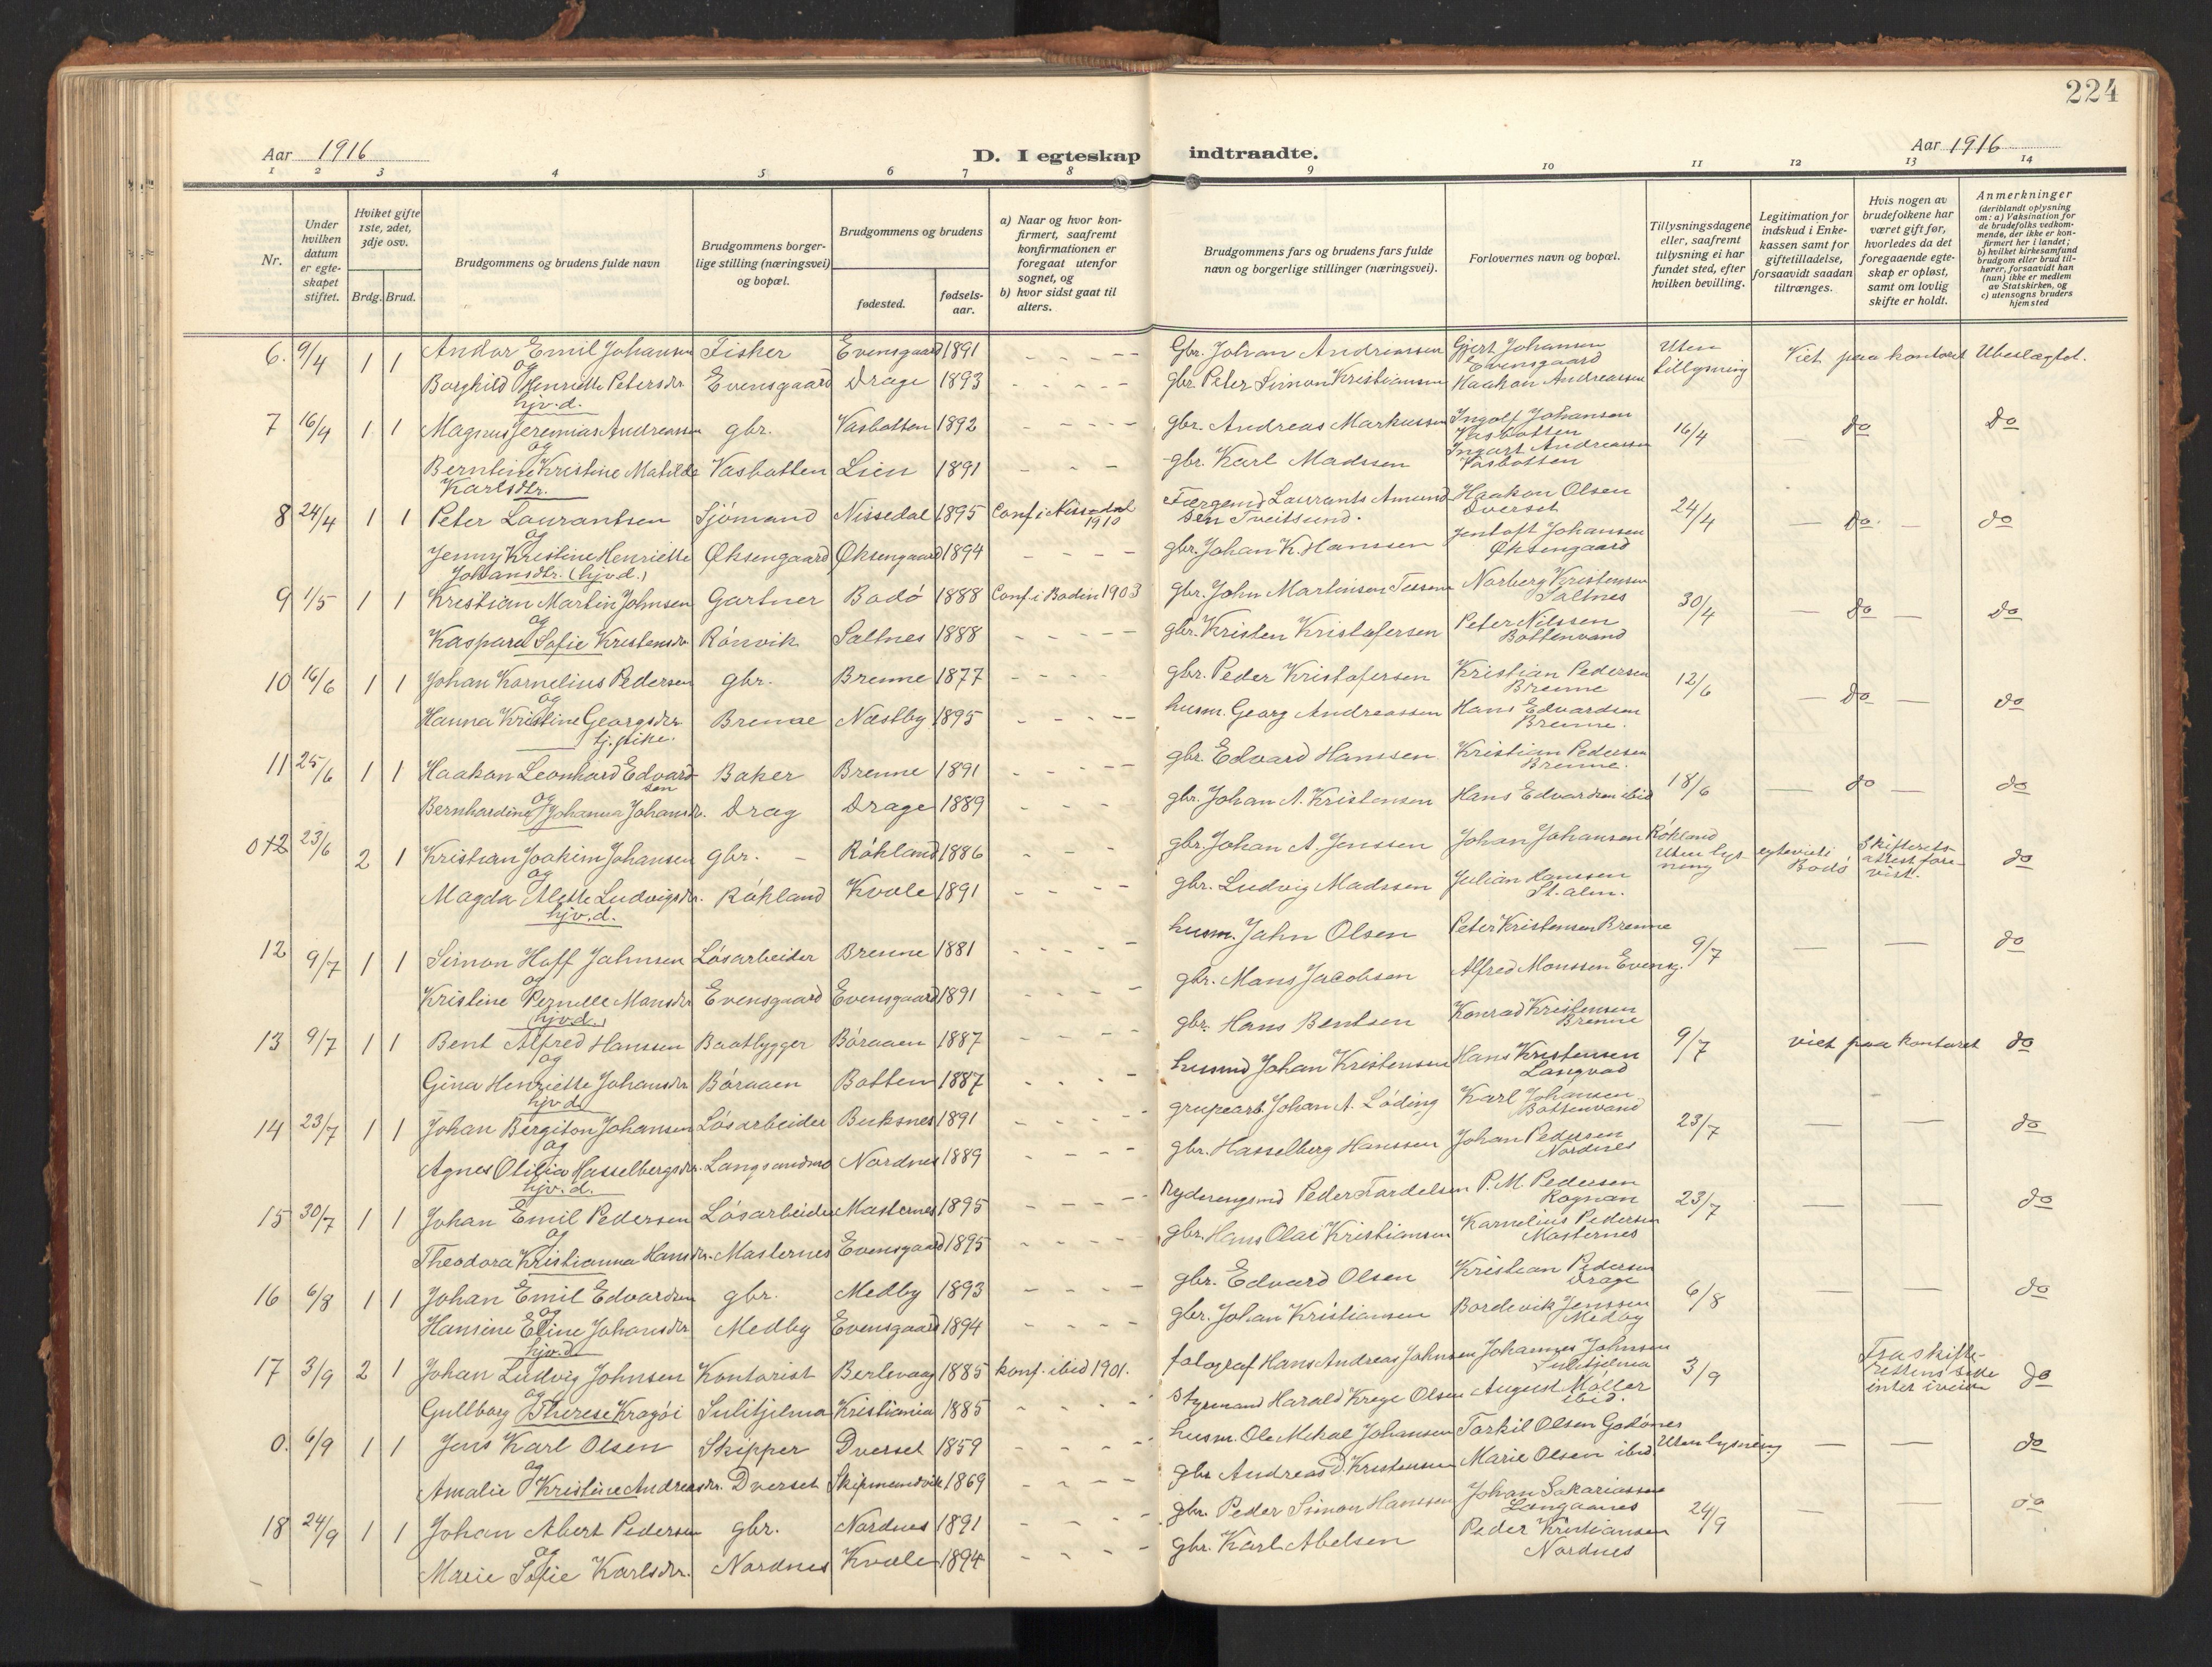 224
Aar 1916
D. I egteskap indtraadte.
Aar 1916
1 2 3 4 5 6 7 8 9 10 11 12 13 14
Nr.
Under hvilken datum er egteskapet stiftet.
Hviket gifte 1ste, 2det, 3dje osv.
Brdg. Brud.
Brudgommens og brudens fulde navn
Brudgommens borgerlige stilling (næringsvei) og bopæl.
Brudgommens og brudens
fødested.
fødselsaar.
a) Naar og hvor konfirmert, saafremt konfirmationen er foregaat utenfor sognet, og
b) hvor sidst gaat til alters.
Brudgommens fars og brudens fars fulde navn og borgerlige stillinger (næringsvei).
Forlovernes navn og bopæl.
Tillysningsdagene eller, saafremt tillysning ei har fundet sted, efter hvilken bevilling.
Legitimation for indskud i Enkekassen samt for giftetilladelse, forsaavidt saadan tiltrænges.
Hvis nogen av brudefolkene har været gift før, hvorledes da det foregaaende egteskap er opløst, samt om lovlig skifte er holdt.
Anmerkninger (deriblandt oplysning om: a) Vaksination for de brudefolks vedkommende, der ikke er konfirmert her i landet; b) hvilket kirkesamfund brudgom eller brud tilhører, forsaavidt han (hun) ikke er medlem av Statskirken, og c) utensogns bruders hjemsted
6. 9/4 1 1 Andor Emil Johansen Fisker Evensgaard 1891 Gbr. Johan Andreassen Gjert Johansen Evensgaard Uten tillysning Viet paa kontoret Ubeslægtet.
og
Borghild Henriette Petersdtr. Evensgaard Drage 1893 gbr. Peter Simon Kristiansen Haakon Andreassen
hjv.d.
7 16/4 1 1 Magnus Jeremias Andreassen gbr. Vasbotten 1892 gbr. Andreas Markussen Ingolf Johansen Vasbotten 16/4 — do do
og
Berntine Kristine Matilde Karlsdtr. Vasbotten Lien 1891 gbr. Karl Madssen Ingart Andreassen Vasbotten
8 24/4 1 1 Peter Laurantsen Sjömand Nissedal 1895 Conf. i Nissedal 1910 Færgemd. Laurants Amundsen Tveitsund. Haakon Olsen Dverset 24/4 — do. — do
og
Jenny Kristine Henriette Johansdtr. (hjv.d.) Øksengaard Øksengaard 1894 gbr. Johan K. Hanssen Jentoft Johansen Øksengaard
9 1/5 1 1 Kristian Martin Johnsen Gartner Bodö 1888 Conf. i Bodin 1903 gbr. John Martinsen Norberg Kristensen Saltnes 30/4 — do — do
og
Kaspara Sofie Kristensdtr. Rönvik Saltnes 1888 gbr. Kristen Kristofersen Peter Nilssen Bottenvand
10 16/6 1 1 Johan Kornelius Pedersen gbr. Brenne 1877 gbr. Peder Kristofersen Kristian Pedersen Brenne 12/6 — do — do
og
Hanna Kristine Georgsdtr. Brenne Næstby 1895 husm. Georg Andreassen Hans Edvardsen Brenne.
tj. pike.
11 25/6 1 1 Haakon Leonhard Edvardsen Baker Brenne 1891 gbr. Edvard Hanssen Kristian Pedersen Brenne. 18/6 — do — do
og
Bernhardine Johanna Johansdtr. Drag Drage 1889 gbr. Johan A. Kristensen Hans Edvardsen ibid
23/6 2 1 Kristian Joakim Johansen gbr. – Rökland 1886 gbr. Johan A. Jenssen Johan Johansen Rökland Uten lysning Bodö Skifterets attest forevist. do
og
Magda Alette Ludvigsdtr. Rökland Kvæle 1891 gbr. Ludvig Madssen Julian Hanssen St. alm.
hjv.d.
12 9/7 1 1 Simon Hoff Jahnsen Lösarbeider Brenne 1881 husm. Jahn Olsen Peter Kristensen Brenne 9/7 — — do
og
Kristine Pernelle Mansdtr. Evensgaard Evensgaard 1891 gbr. Mans Jacobsen Alfred Monssen Evensg.
(hjv.d.)
13 9/7 1 1 Bent Alfred Hanssen Baatbygger Böraaen 1887 gbr. Hans Bentsen Konrad Kristensen Brenne 9/7 viet paa kontoret do
og
Gina Henriette Johansdtr. Böraaen Botten 1887 husmd Johan Kristensen Hans Kristensen
hjv.d.
14 23/7 1 1 Johan Bergiton Johansen Lösarbeider Buksnes 1891 grupearb. Johan A. Löding Karl Johansen Bottenvand 23/7 — — do
og
Agnes Otilia Hasselbergsdtr. Langsandmo Nordnes 1889 gbr. Hasselberg Hanssen Johan Pedersen Nordnes
hjv.d.
15 30/7 1 1 Johan Emil Pedersen Lösarbeider Masternes 1895 Peder P. M. Pedersen Rognan 23/7 — — do
og
Theodora Kristianna Hansdtr. Masternes Evensgaard 1895 gbr. Hans Olai Kristiansen Karnelius Pedersen Masternes
16 6/8 1 1 Johan Emil Edvardsen gbr. Medby 1893 gbr. Edvard Olsen Kristian Pedersen Drage 6/8 — — do
og
Hansine Eline Johansdtr Medby Evensgaard 1894 gbr. Johan Kristiansen Bordevik Jenssen Medby
hjv.d.
17 3/9 2 1 Johan Ludvig Johnsen Kontorist Berlevaag 1885 konf. ibid 1901. fotograf Hans Andreas Johnsen Johannes Johnsen Sulitjelma 3/9 Fra skifterettens side intet iveien do
og
Gullborg Therese Kragöi Sulitjelma Kristiania 1885 Styrmand Harald Krege Olsen August Möller ibid.
0. 6/9 1 1 Jens Karl Olsen Skipper Dverset 1859 husm. Ole Mikal Johansen Torkil Olsen Godönes Uten lysning — — do
og
Amalie Kristine Andreasdtr. Dverset Skipmandvik 1869 gbr Andreas D. Kristensen Marie Olsen ibid.
18 24/9 1 1 Johan Abert Pedersen gbr. Nordnes 1891 gbr. Peder Simon Hanssen Johan Sakariassen Langaanes 24/9 — — do
og
Marie Sofie Karlsdtr. Nordnes Kvæle 1894 gbr. Karl Abelsen Peder Kristiansen Nordnes